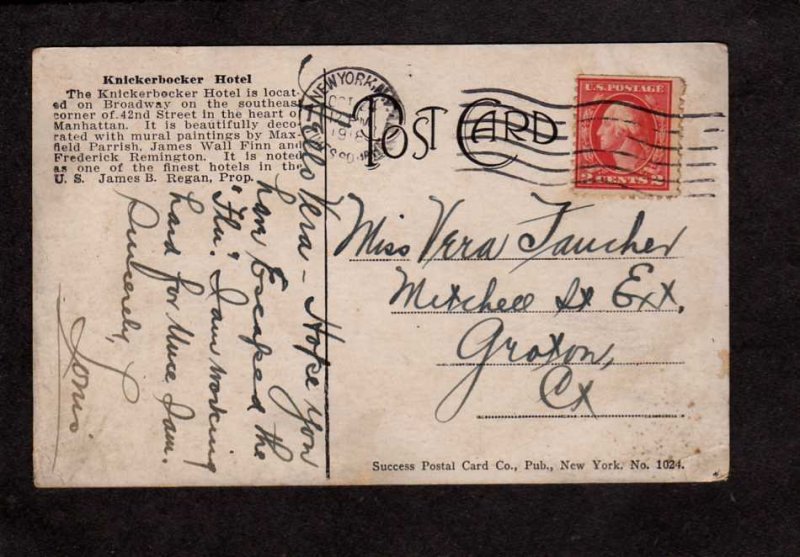 Knickerbocker Hotel
The Knickerbocker Hotel is locat-
ed on Broadway on the southeast
corner of 42nd Street in the heart of
Manhattan. It is beautifully deco-
rated with mural paintings by Max-
field Parrish, James Wall Finn and
Frederick Remington. It is noted
as one of the finest hotels in the
U. S. James B. Regan, Prop.
NEW YORK, N.Y.
OCT
1918
POST CARD
U.S. POSTAGE
2 CENTS 2
Hello Vera - Hope you
have Escaped the
"Flu". I am working
hard for Unce Sam.
Sincerely,
Miss Vera Faucher
Mitchell St Ext,
Groton,
Ct
Success Postal Card Co., Pub., New York. No. 1024.